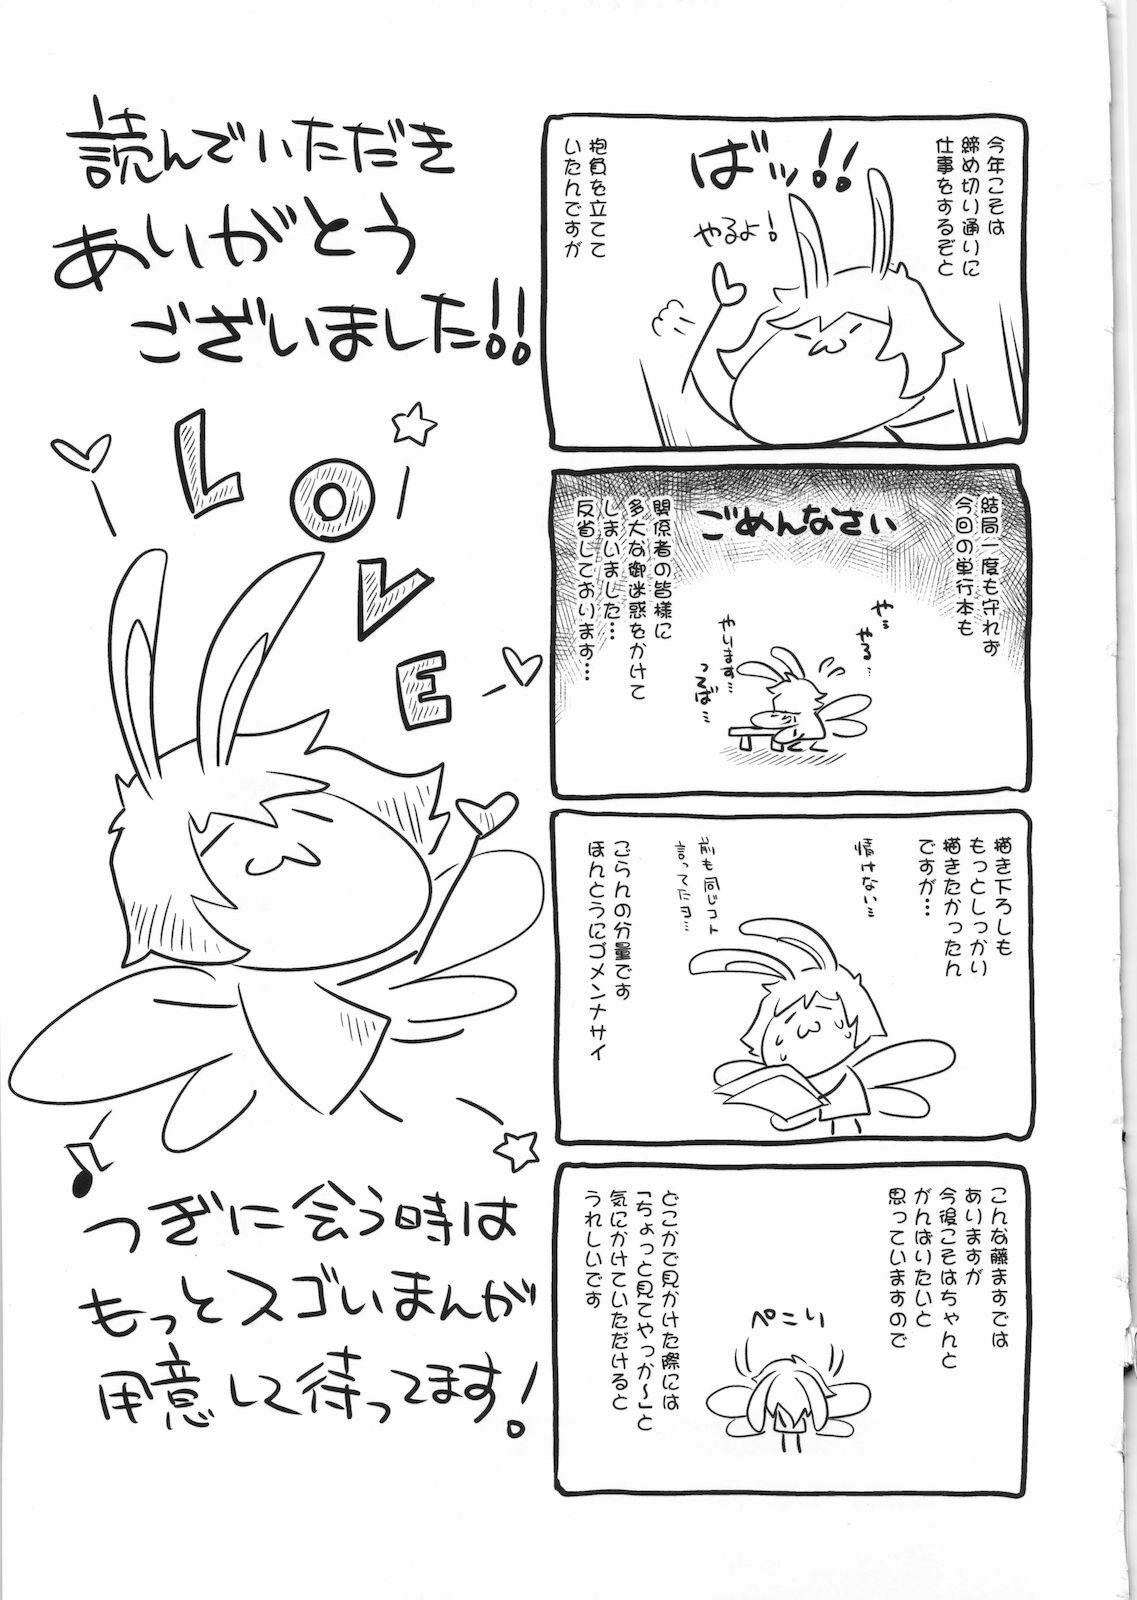 今年こそは
締め切り通りに
仕事をするぞと
ばッ!!
やるよ!
抱負を立てて
いたんですが
結局一度も守れず
今回の単行本も
ごめんなさい
や…
やる…
やります…
つるば…
関係者の皆様に
多大な御迷惑をかけて
しまいました…
反省しております…
描き下ろしも
もっとしっかり
描きたかったん
ですが…
情けない…
前も同じコト
言ってたヨ…
ごらんの分量です
ほんとうにゴメンナサイ
こんな藤ますでは
ありますが
今後こそはちゃんと
がんばりたいと
思っていますので
ぺこり
どこかで見かけた際には
「ちょっと見てやっか～」と
気にかけていただけると
うれしいです
読んでいただき
ありがとう
ございました!!
LOVE
つぎに会う時は
もっとスゴいまんが
用意して待ってます!